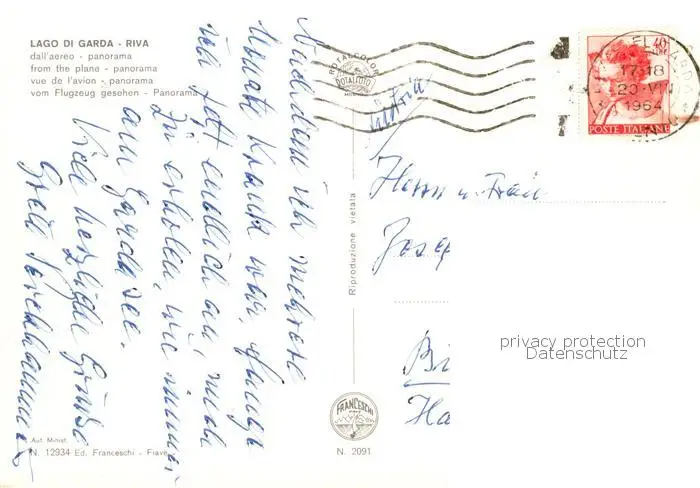 LAGO DI GARDA - RIVA
dall'aereo - panorama
from the plane - panorama
vue de l'avion - panorama
vom Flugzeug gesehen - Panorama
ROTALCOLOR
ROTALFOTO
40
17-18
20-VIII
1964
POSTE ITALIANE
Nachdem ich mehrere
Monate krank war, fange
ich jetzt endlich an, mich
zu erholen, wie immer,
am Gardasee.
Viele herzliche Grüße
Riproduzione vietata
Herrn u. Frau
Josef
Bi
Ha
privacy protection
Datenschutz
FRANCESCHI
Aut. Minist.
N. 12934 Ed. Franceschi - Fiavè
N. 2091